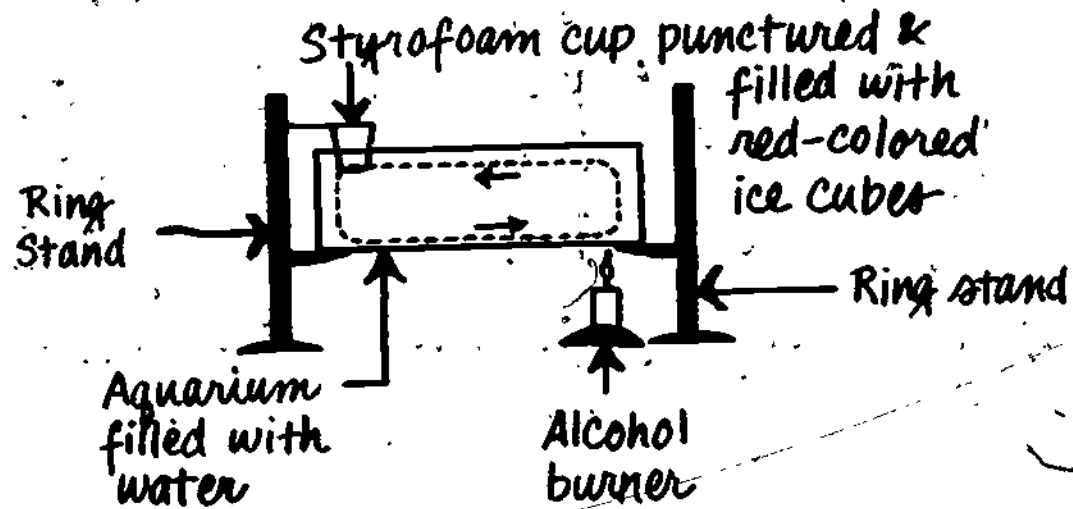 Styrofoam cup punctured &
filled with
red-colored
ice cubes
Ring
Stand
Ring stand
Aquarium
filled with
water
Alcohol
burner